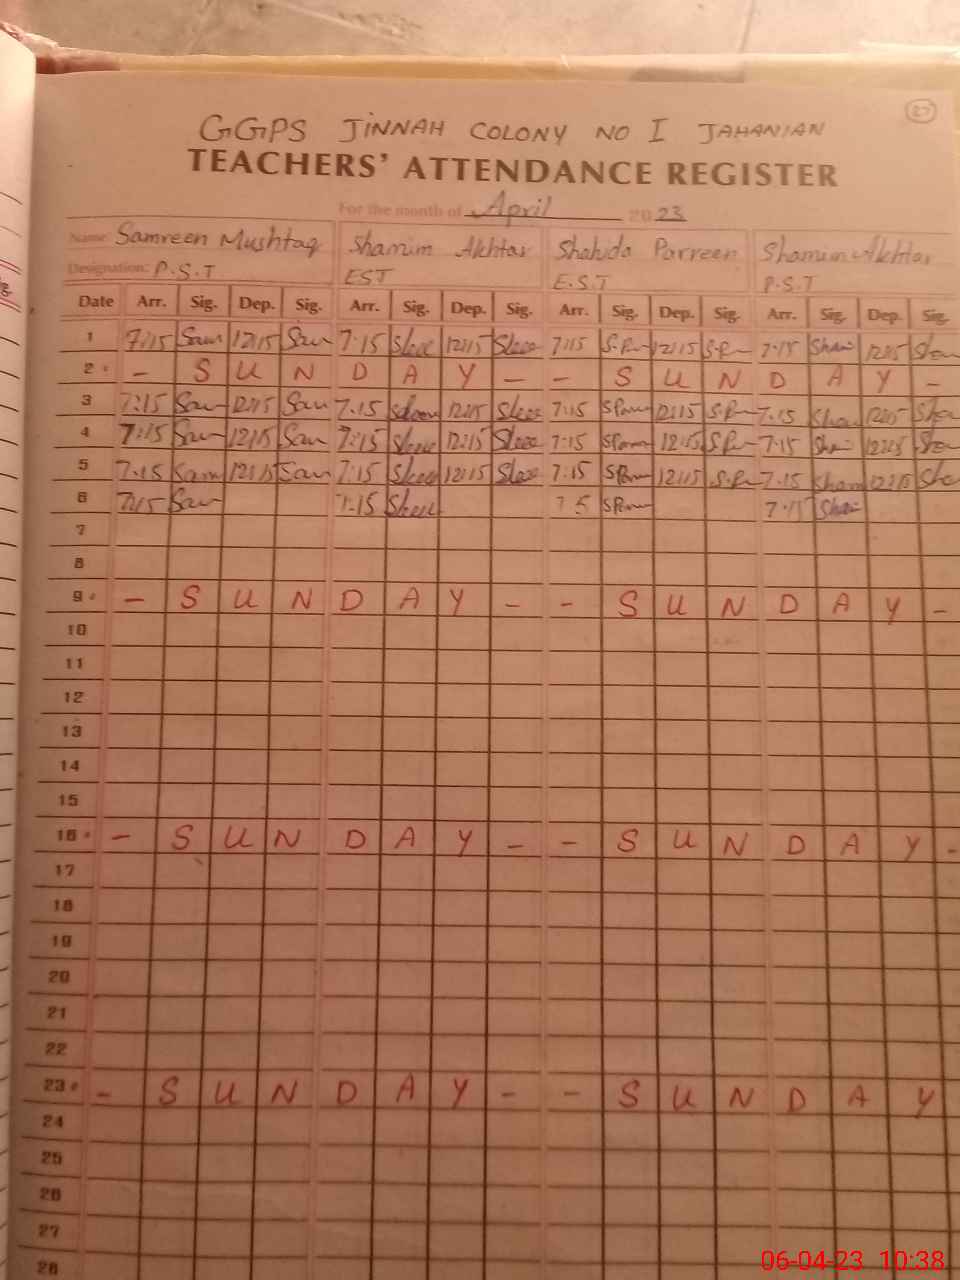 27
GGPS JINNAH COLONY NO I JAHANIAN
TEACHERS' ATTENDANCE REGISTER
For the month of April 2023
Name: Samreen Mushtaq Shamim Akhtar Shahida Parveen Shamim Akhtar
Designation: P.S.T EST E.S.T P.S.T
Date Arr. Sig. Dep. Sig. Arr. Sig. Dep. Sig. Arr. Sig. Dep. Sig. Arr. Sig. Dep. Sig.
1 7:15 Sam 12:15 Sam 7:15 12:15 7:15 12:15 7:15 12:15
2 - S U N D A Y - - S U N D A Y -
3 7:15 Sam 12:15 Sam 7:15 12:15 7:15 12:15 7:15 12:15
4 7:15 Sam 12:15 Sam 7:15 12:15 7:15 12:15 7:15 12:15
5 7:15 Sam 12:15 Sam 7:15 12:15 7:15 12:15 7:15 12:15
6 7:15 Sam 7:15 7:15
7
8
9 - S U N D A Y - - S U N D A Y -
10
11
12
13
14
15
16 - S U N D A Y - - S U N D A Y -
17
18
19
20
21
22
23 - S U N D A Y - - S U N D A Y
24
25
26
27
28
06-04-23 10:38